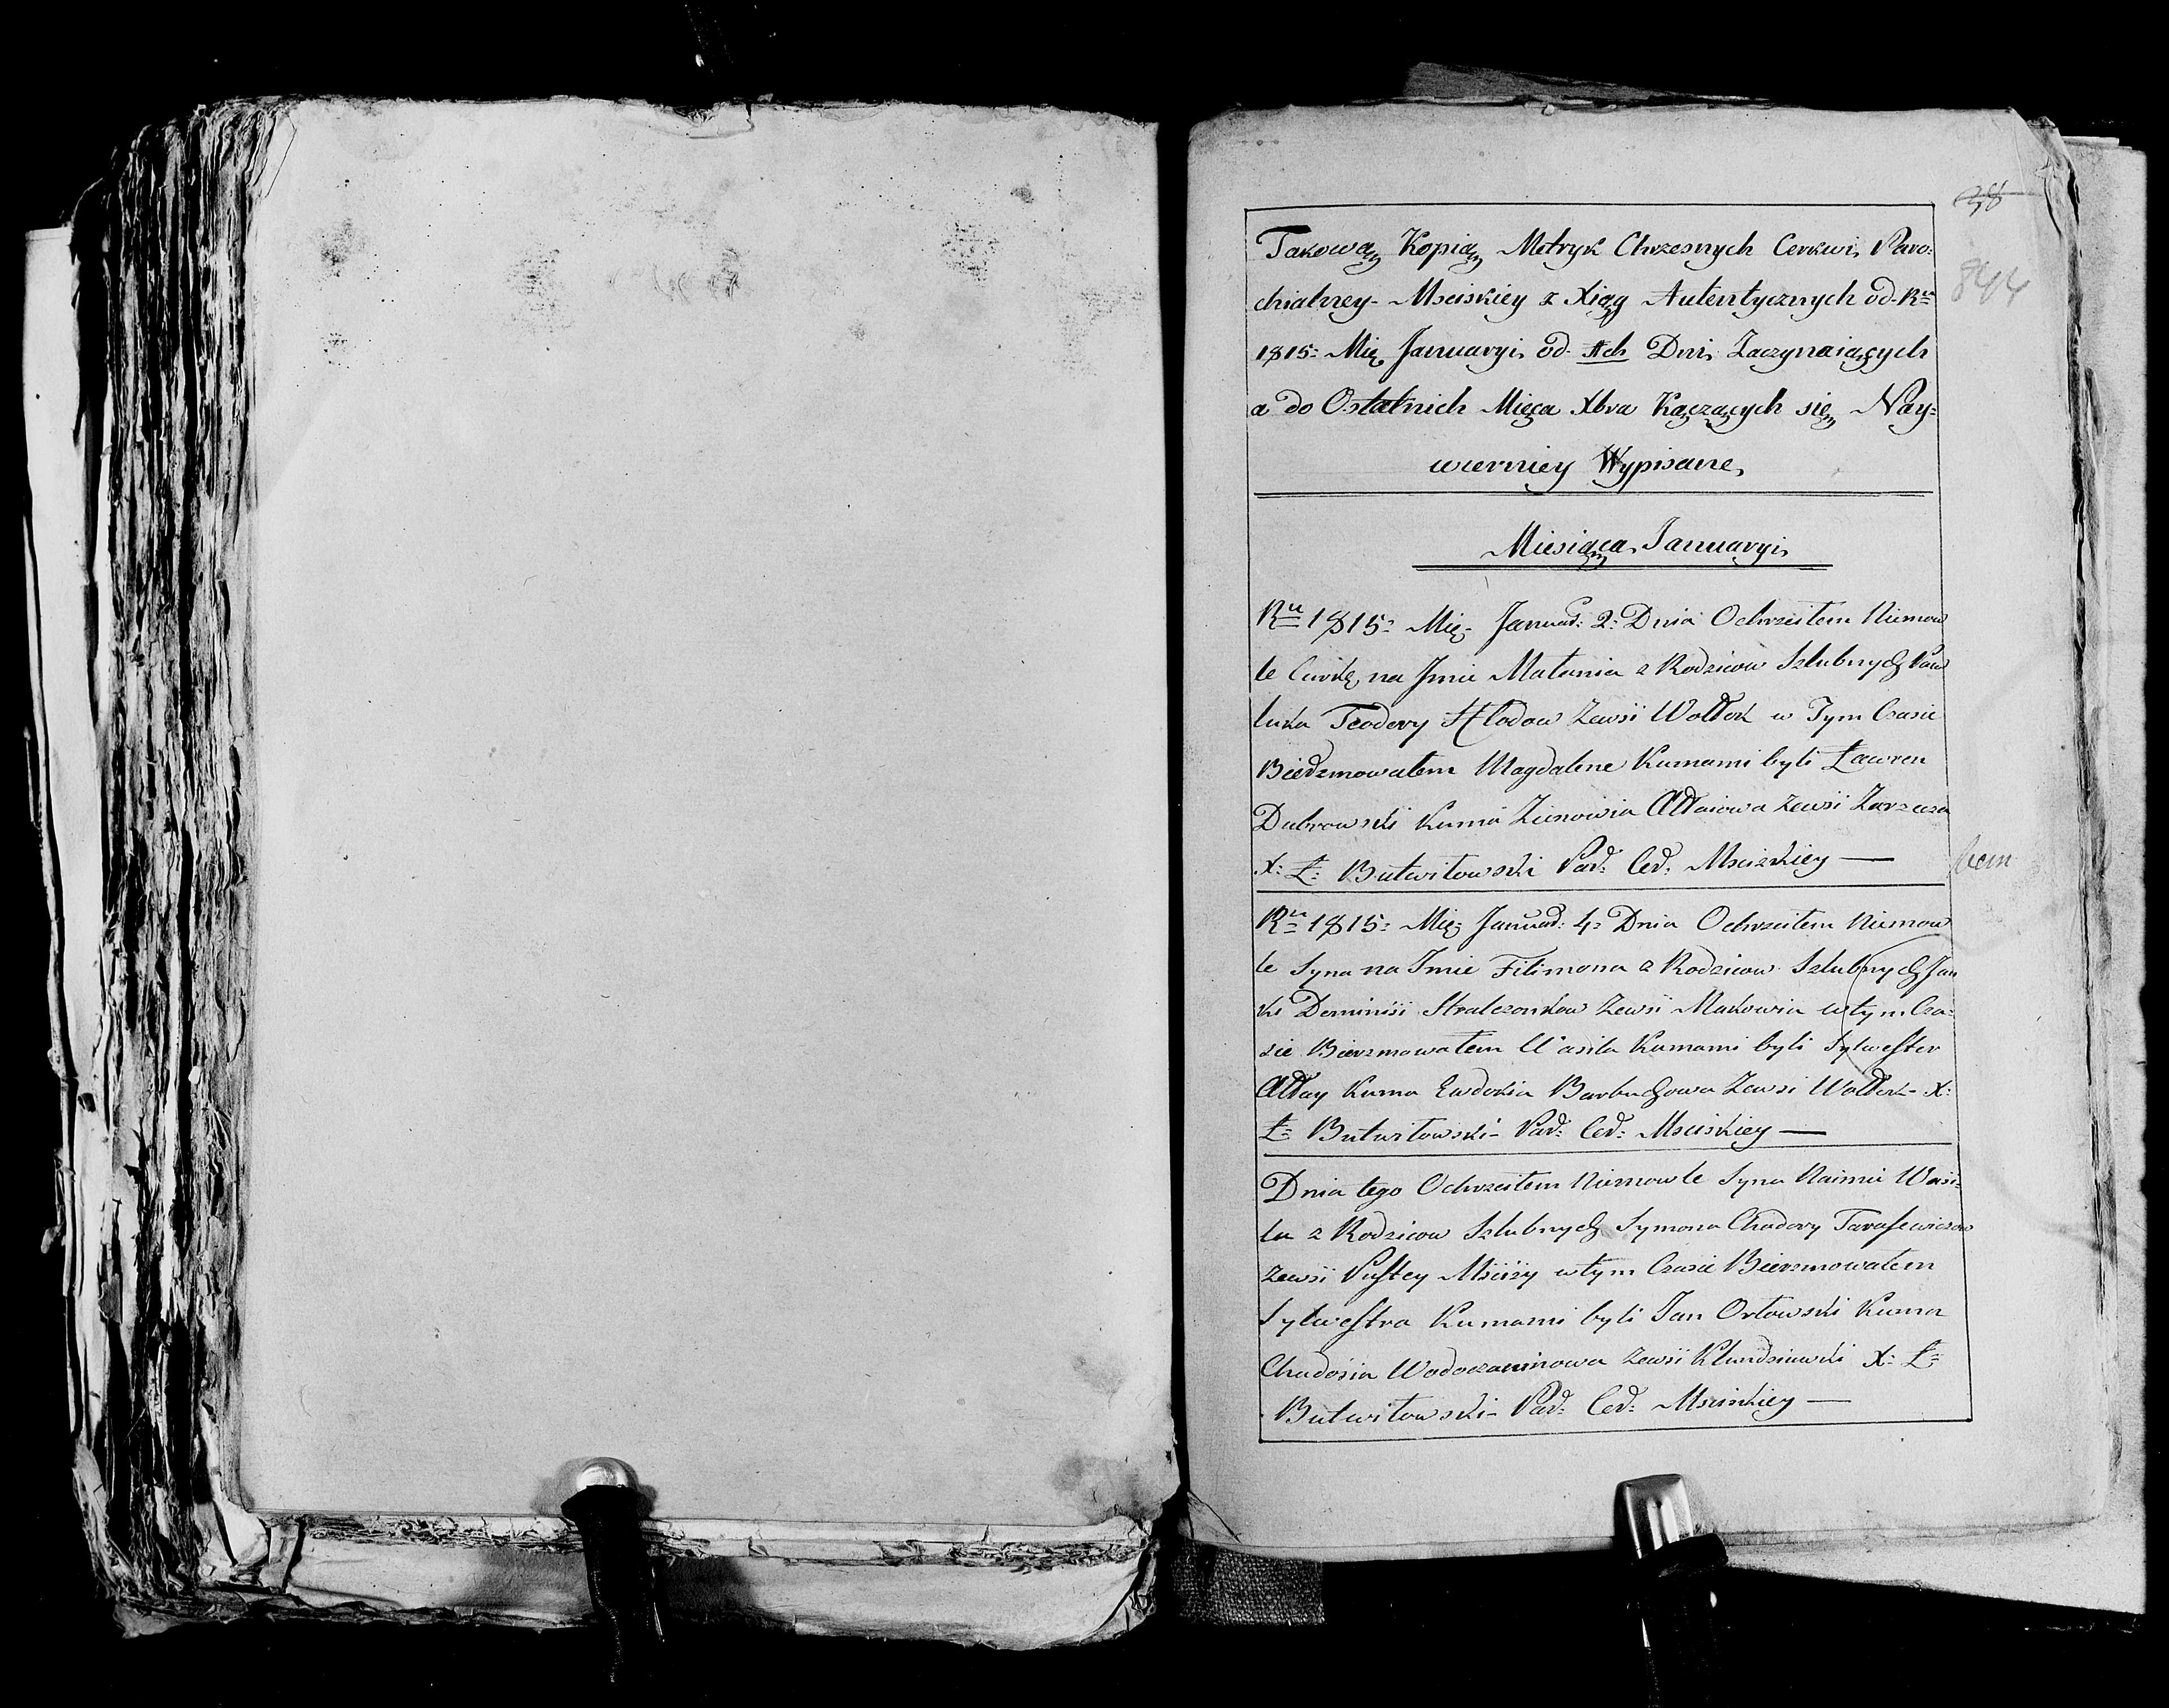 38
844
Takową Kopią Metryk Chrzesnych Cerkwi Paro:
chialney Msciskiey z Xiąg Autentycznych od Ru
1815: Mię Januaryi od 1ch Dni Zaczynaiących
a do Ostatnich Mięca Xbra Kączących się Nay=
wierniey Wypisane,
Miesiąca Januaryi
Ru 1815: Mię: Januar: 2: Dnia Ochrzciłem Niemow
le Curkę na Jmie Małania z Rodzicow Szlubnych Paw
luka Teodory Hłodow Zewsi Wołłok w Tym Czasie
Bierzmowałem Magdalene Kumami byli Ławren
Dubrowski Kuma Zienowia Ałłaiowa Zewsi Zarzecza
X: Ł: Butwiłowski Par: Cer: Msciskiey —
Ru 1815: Mię: Januar: 4: Dnia Ochrzciłem Niemow
le Syna na Jmie Filimona z Rodzicow Szlubnych Jan
ki Dominisi Stralczonkow Zewsi Makowia w tym Cza:
sie Bierzmowałem Wasila Kumami byli Sylwester
Ałłay Kuma Ewdokia Barbuchowa Zewsi Wołłok X:
Ł: Butwiłowski Par: Cer: Msciskiey —
Dnia tego Ochrzciłem Niemowle Syna Naimie Wasi:
la z Rodzicow Szlubnych Symona Chadory Tarasewiczow
Zewsi Pustey Mściży w tym Czasie Bierzmowałem
Sylwestra Kumami byli Jan Orłowski Kuma
Chadosia Wodoczaninowa Zewsi X: Ł:
Butwiłowski Par: Cer: Msciskiey —